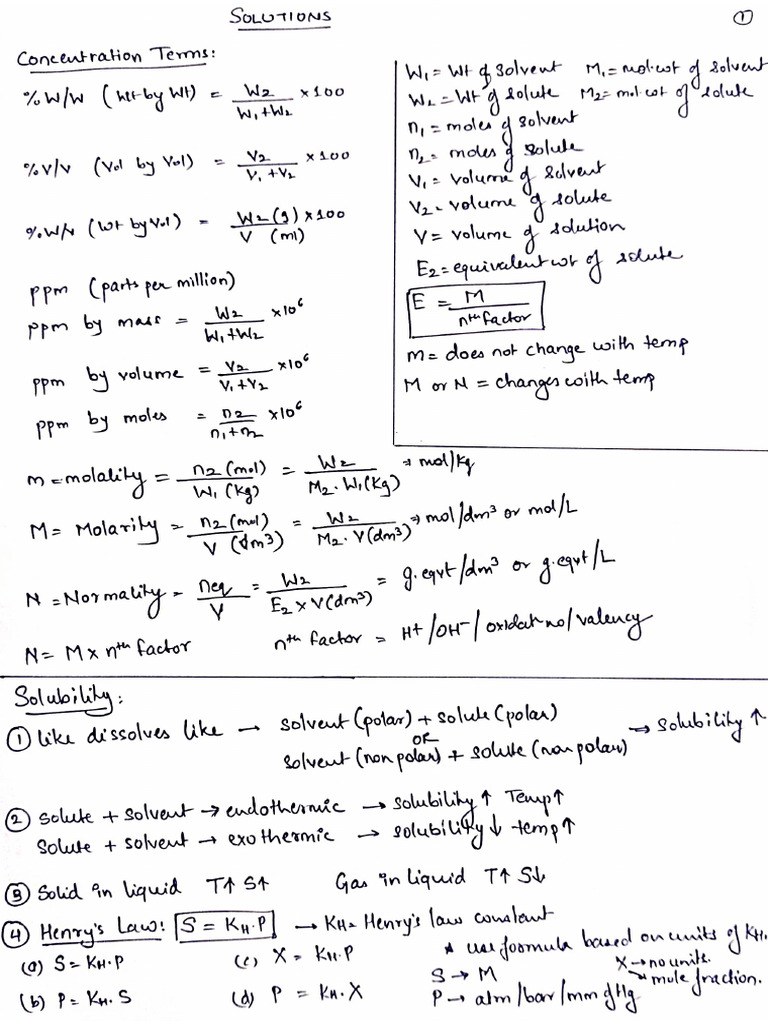 SOLUTIONS
①
Concentration Terms:
% W/W (Wt by Wt) = W2 / W1+W2 ×100
% V/V (Vol by Vol) = V2 / V1+V2 ×100
% W/V (Wt by Vol) = W2(g) / V (ml) ×100
ppm (parts per million)
ppm by mass = W2 / W1+W2 ×10⁶
ppm by volume = V2 / V1+V2 ×10⁶
ppm by moles = n2 / n1+n2 ×10⁶
W1= Wt of solvent M1= mol.wt of solvent
W2= Wt of solute M2= mol.wt of solute
n1= moles of solvent
n2= moles of solute
V1= volume of solvent
V2= volume of solute
V= volume of solution
E2= equivalent wt of solute
E = M / nth factor
m= does not change with temp
M or N = changes with temp
m=molality = n2(mol) / W1(kg) = W2 / M2.W1(kg) ⇒ mol/kg
M= Molarity = n2(mol) / V (dm³) = W2 / M2.V(dm³) ⇒ mol/dm³ or mol/L
N=Normality = neq / V = W2 / E2×V(dm³) = g.eqvt/dm³ or g.eqvt/L
N= M× nth factor nth factor = H+/OH-/oxidat no/valency
Solubility:
① like dissolves like → solvent(polar)+solute(polar)
OR → solubility↑
solvent(nonpolar)+ solute (non polar)
② solute + solvent → endothermic → solubility↑ Temp↑
Solute + solvent → exothermic → solubility↓ temp↑
③ Solid in liquid T↑ S↑ Gas in liquid T↑ S↓
④ Henry's Law: S = KH.P → KH= Henry's law constant
(a) S=KH.P (c) X = KH.P * use formula based on units of KH.
S → M X → no units.
(b) P=KH.S (d) P = KH.X P → atm/bar/mm of Hg → mole fraction.